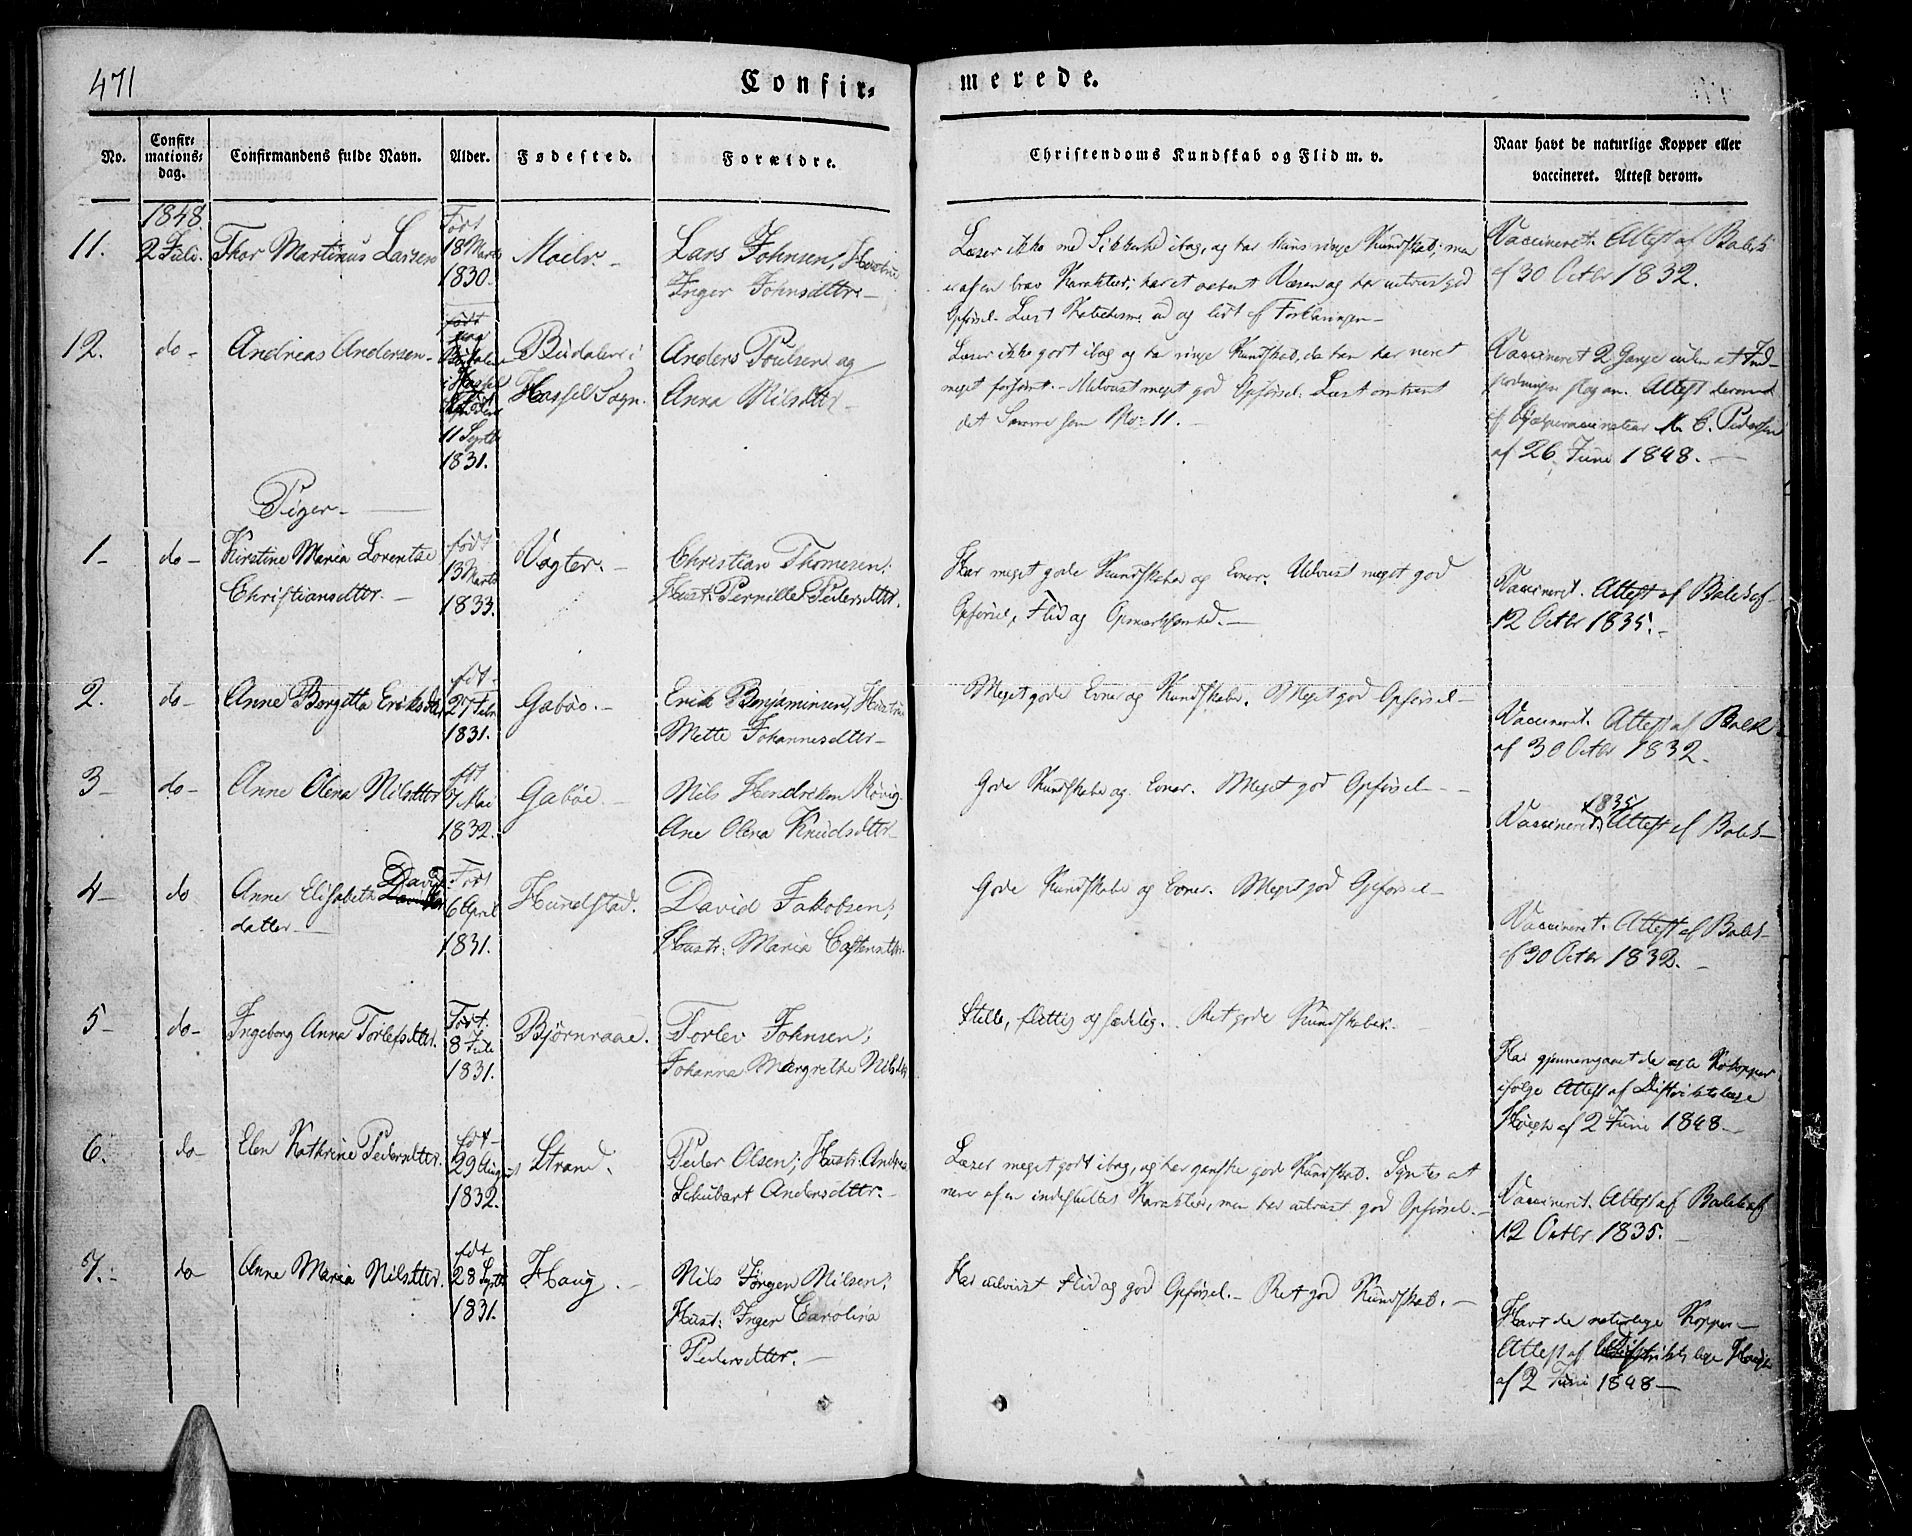 471
Confir-
merede.
No.
Confir-
mations-
dag.
Confirmandens fulde Navn.
Alder.
Fødested.
Forældre.
Christendoms Kundskab og Flid m. v.
Naar havt de naturlige Kopper eller
vaccineret. Attest derom.
1848.
11.
2 Juli.
Thor Martinus Larsen
Født
18 Marts
1830.
Moelv.
Lars Johnsen, Hustrue
Inger Johnsdttr.
Læser ikke med Sikkerhed ibog, og har kuns ringe Kundskab; men
er af en brav Karakteer; har et aabent Væsen og har udviist god
Opførsel. Læst Katechism. ud og lidt af Forklaringen
Vaccineret. Attest af Balch
af 30 Octbr 1832.
12.
do
Andreas Andersen
født
11 Septbr
1831.
Budalen i
Hassel Sogn.
Anders Poulsen og
Anna Nilsdttr
Læser ikke godt ibog og har ringe Kundskab, da han har været
meget forsømt. Udviist meget god Opførsel. Læst omtrent
det Samme som No. 11.
Vaccineret 2 Gange uden at Ind-
podningen slog an. Attest derom
af Hjælpevaccinateur M. C. Pedersen
af 26 Juni 1848.
Piger
1
do
Kirstine Maria Lorentze
Christiansdttr.
født
13 Marts
1833.
Vogter.
Christian Thomesen;
Hust: Pernille Pedersdttr.
Har meget gode Kundskaber og Evner. Udviist meget god
Opførsel, Flid og Opmærksomhed.
Vaccineret. Attest af Balch af
12 Octbr 1835.
2.
do
Anne Bergitta Eriksdttr
fdt
27 Febr
1831.
Gabøe.
Erick Benjaminsen, Hustrue
Mette Johannesdttr
Meget gode Evner og Kundskaber. Meget god Opførsel
Vaccineret. Attest af Balch
af 30 Octbr 1832.
3
do
Anne Olena Nilsdttr
fdt
7 Mai
1832.
Gabøe.
Nils Hendriksen Rønig.
Ane Olena Knudsdttr
Gode Kundskaber og Evner. Meget god Opførsel
1835
Vaccineret. Attest af Balch
4
do
Anne Elisabeth David-
datter
Født
6 April
1831.
Hundstad.
David Jakobsen;
Hustr: Maria Castensdttr.
Gode Kundskaber og Evner. Meget god Opførsel
Vaccineret. Attest af Balch
af 30 Octbr 1832.
5
do
Ingeborg Anna Torlefsdttr.
Født.
8 Juli
1831.
Bjørnraae.
Torlev Johnsen;
Johanna Margrethe Nilsdtr
Stille, flittig og sædelig. Ret gode Kundskaber.
Har gjennemgaaet de ægte Kokopper
ifølge Attest af Distriktslæge
Hough af 2 Juni 1848.
6.
do
Elen Kathrine Pedersdttr.
fdt
29 August
1832.
Strand.
Peder Olsen; Hustr: Andrea
Schubart Andersdttr.
Læser meget godt ibog, og har ganske god Kundskab. Synes at
være af en indesluttet Karakteer, men har udviist god Opførsel.
Vaccineret. Attest af Balch af
12 Octbr 1835.
7.
do
Anne Maria Nilsdttr.
fdt
28 Septbr
1831.
Haug.
Nils Jørgen Nilsen;
Hust: Inger Carolina
Pedersdttr.
Har udviist Flid og god Opførsel. Ret god Kundskab.
Havt de naturlige Kopper
Attest af Distriktslæge Hough
af 2 Juni 1848